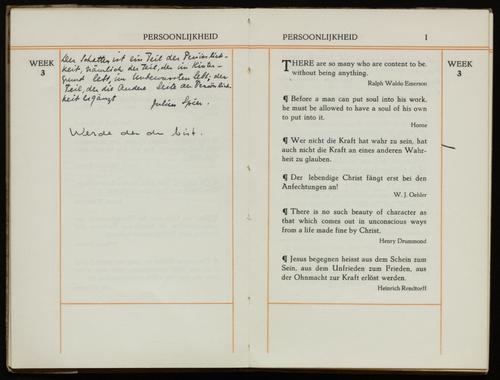 PERSOONLIJKHEID
WEEK
3
Der Schatten ist ein Teil der Persönlich-
keit, nämlich der Teil, der im Hinter-
grund lebt, im Unbewussten lebt; der
Teil, der die Andere Seite der Persönlich-
keit ergänzt
Julius Spier.
Werde der du bist.
PERSOONLIJKHEID
1
WEEK
3
THERE are so many who are content to be,
without being anything.
Ralph Waldo Emerson
¶ Before a man can put soul into his work,
he must be allowed to have a soul of his own
to put into it.
Horne
¶ Wer nicht die Kraft hat wahr zu sein, hat
auch nicht die Kraft an eines anderen Wahr-
heit zu glauben.
¶ Der lebendige Christ fängt erst bei den
Anfechtungen an!
W. J. Oehler
¶ There is no such beauty of character as
that which comes out in unconscious ways
from a life made fine by Christ.
Henry Drummond
¶ Jesus begegnen heisst aus dem Schein zum
Sein, aus dem Unfrieden zum Frieden, aus
der Ohnmacht zur Kraft erlöst werden.
Heinrich Rendtorff